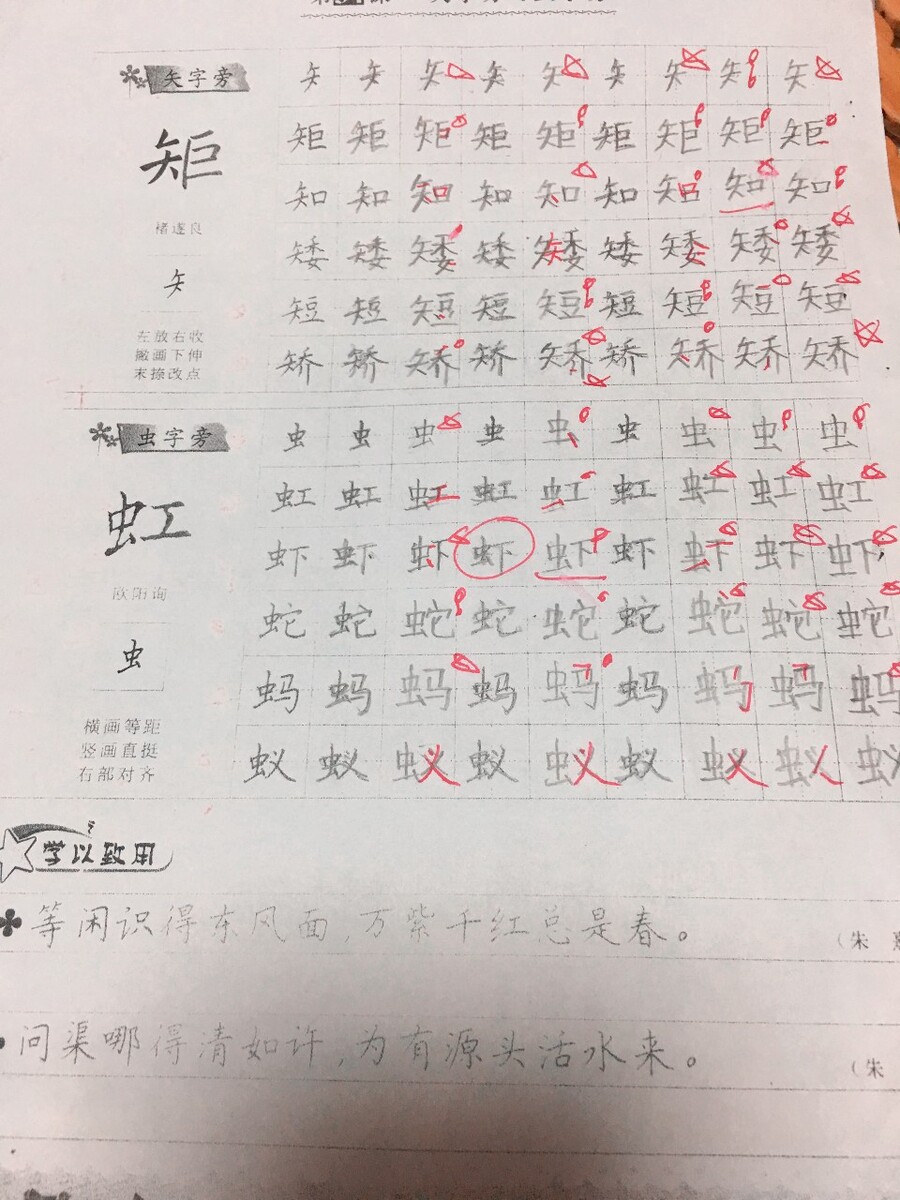 矢字旁
矩
褚遂良
矢
左放右收
撇画下伸
末捺改点
矢 矢 矢 矢 矢 矢 矢 矢 矢
矩 矩 矩 矩 矩 矩 矩 矩 矩
知 知 知 知 知 知 知 知 知
矮 矮 矮 矮 矮 矮 矮 矮 矮
短 短 短 短 短 短 短 短 短
矫 矫 矫 矫 矫 矫 矫 矫 矫
虫字旁
虹
欧阳询
虫
横画等距
竖画直挺
右部对齐
虫 虫 虫 虫 虫 虫 虫 虫 虫
虹 虹 虹 虹 虹 虹 虹 虹 虹
虾 虾 虾 虾 虾 虾 虾 虾 虾
蛇 蛇 蛇 蛇 蛇 蛇 蛇 蛇 蛇
蚂 蚂 蚂 蚂 蚂 蚂 蚂 蚂 蚂
蚁 蚁 蚁 蚁 蚁 蚁 蚁 蚁 蚁
学以致用
等闲识得东风面,万紫千红总是春。 (朱 熹
问渠哪得清如许,为有源头活水来。 (朱